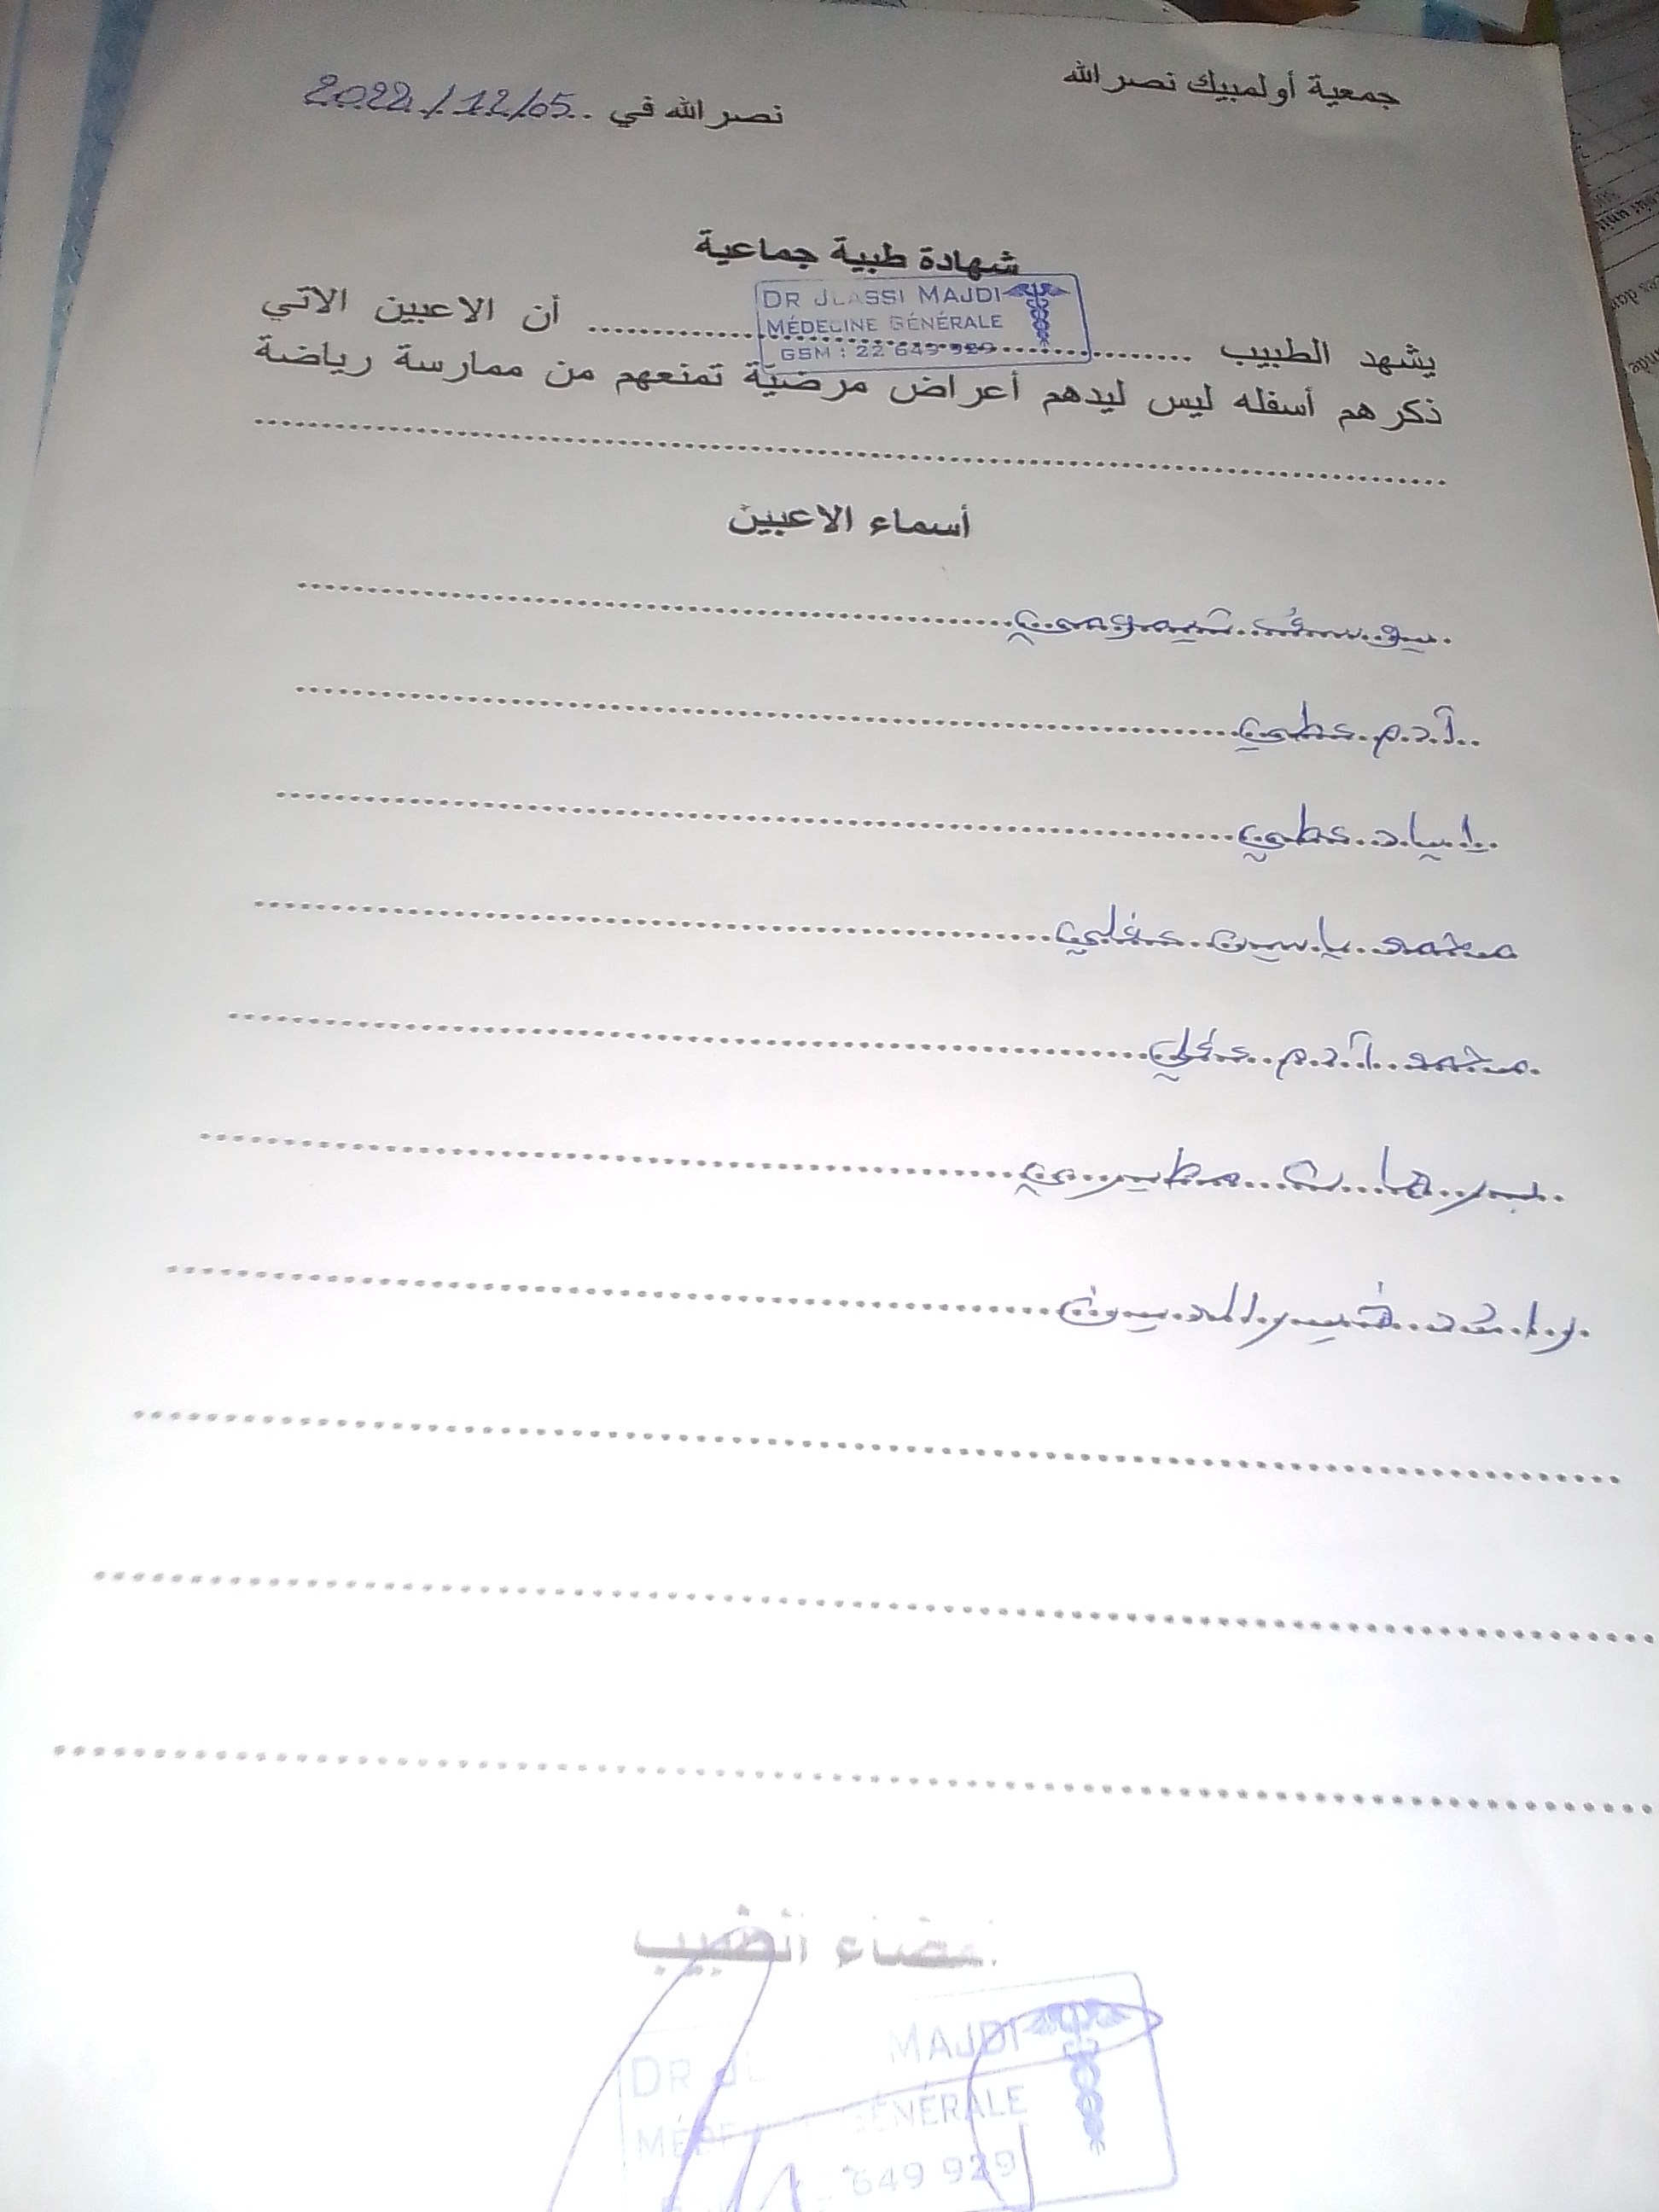 جمعية أولمبيك نصر الله
نصر الله في ..2022/12/05
شهادة طبية جماعية
DR JLASSI MAJDI
MÉDECINE GÉNÉRALE
GSM : 22 649 929
يشهد الطبيب ........................ أن الاعبين الاتي
ذكرهم أسفله ليس ليدهم أعراض مرضيّة تمنعهم من ممارسة رياضة
أسماء الاعبين
يوسف
آدم عطي
اياد عطي
محمد ياسين عفلي
محمد آدم
برهان مطيري
راشد خير الدين
إمضاء الطبيب
DR JL MAJDI
GÉNÉRALE
649 929